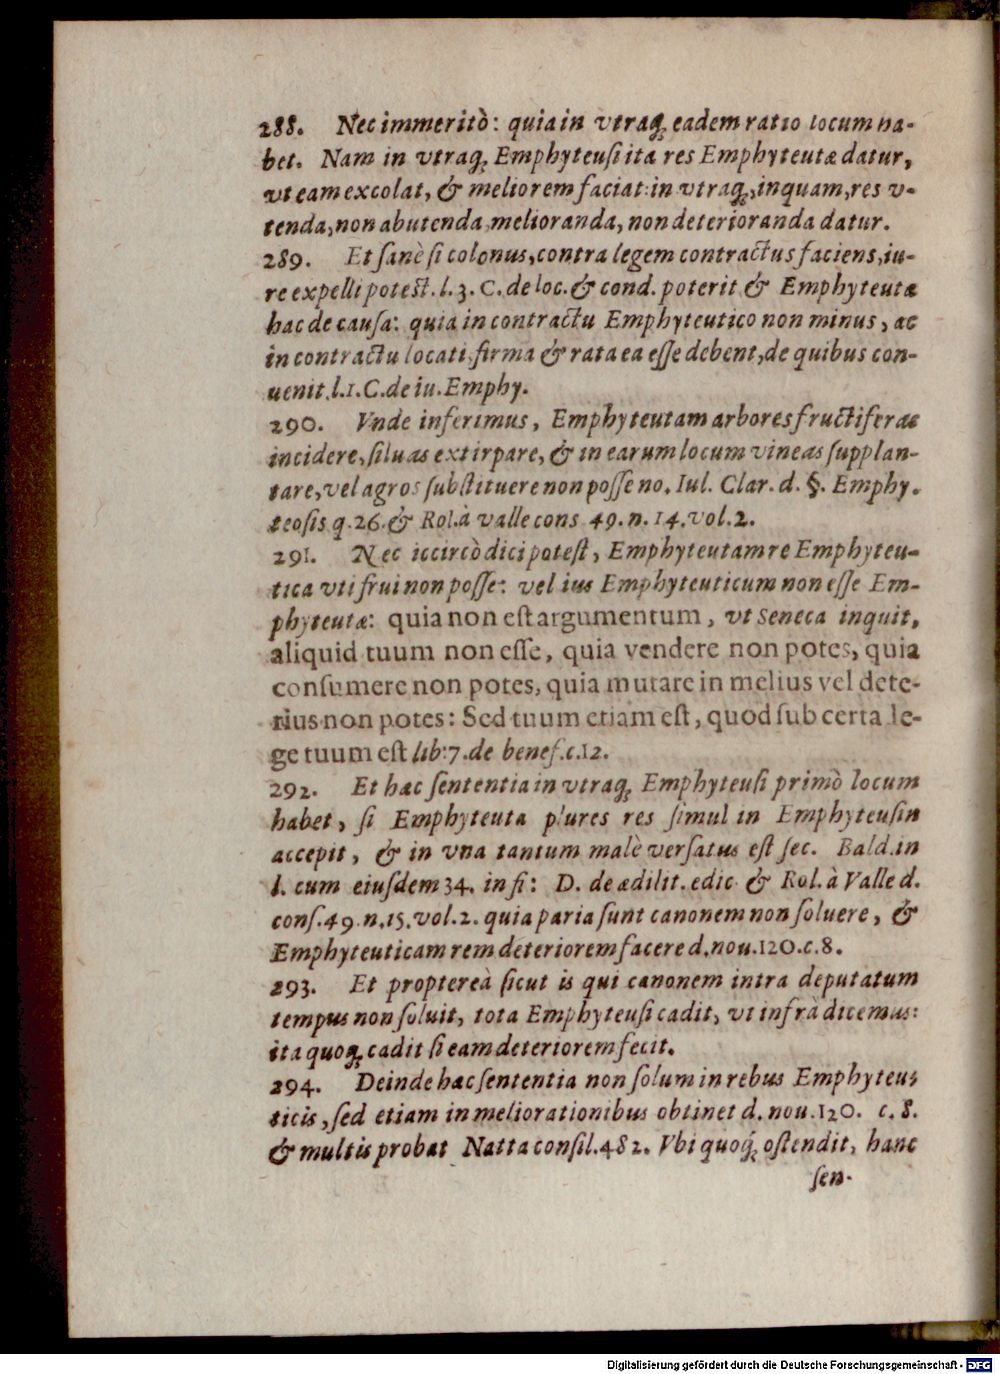 288. Nec immeritò: quia in vtraq; eadem ratio locum ha-
bet. Nam in vtraq; Emphyteusi ita res Emphyteutæ datur,
vt eam excolat, & meliorem faciat: in vtraq;, inquam, res v-
tenda, non abutenda, melioranda, non deterioranda datur.
289. Et sanè si colonus, contra legem contractus faciens, iu-
re expelli potest. l. 3. C. de loc. & cond. poterit & Emphyteuta
hac de causa: quia in contractu Emphyteutico non minus, ac
in contractu locati, firma & rata ea esse debent, de quibus con-
uenit. l. 1. C. de iu. Emphy.
290. Vnde inferimus, Emphyteutam arbores fructiferas
incidere, siluas extirpare, & in earum locum vineas supplan-
tare, vel agros substituere non posse no. Iul. Clar. d. §. Emphy.
teosis q. 26. & Rol. à valle cons 49. n. 14. vol. 2.
291. Nec iccircò dici potest, Emphyteutam re Emphyteu-
tica vti frui non posse: vel ius Emphyteuticum non esse Em-
phyteutæ: quia non est argumentum, vt Seneca inquit,
aliquid tuum non esse, quia vendere non potes, quia
consumere non potes, quia mutare in melius vel dete-
rius non potes: Sed tuum etiam est, quod sub certa le-
ge tuum est lib: 7. de benef. c. 12.
292. Et hæc sententia in vtraq; Emphyteusi primò locum
habet, si Emphyteuta plures res simul in Emphyteusin
accepit, & in vna tantum malè versatus est sec. Bald. in
l. cum eiusdem 34. in fi: D. de ædilit. edic & Rol. à Valle d.
cons. 49. n. 15. vol. 2. quia paria sunt canonem non soluere, &
Emphyteuticam rem deteriorem facere d. nou. 120. c. 8.
293. Et propterea sicut is qui canonem intra deputatum
tempus non soluit, tota Emphyteusi cadit, vt infrà dicemus:
ita quoq; cadit si eam deteriorem fecit.
294. Deinde hæc sententia non solum in rebus Emphyteu-
ticis, sed etiam in meliorationibus obtinet d. nou. 120. c. 8.
& multis probat Natta consil. 482. Vbi quoq; ostendit, hanc
sen-
Digitalisierung gefördert durch die Deutsche Forschungsgemeinschaft - DFG